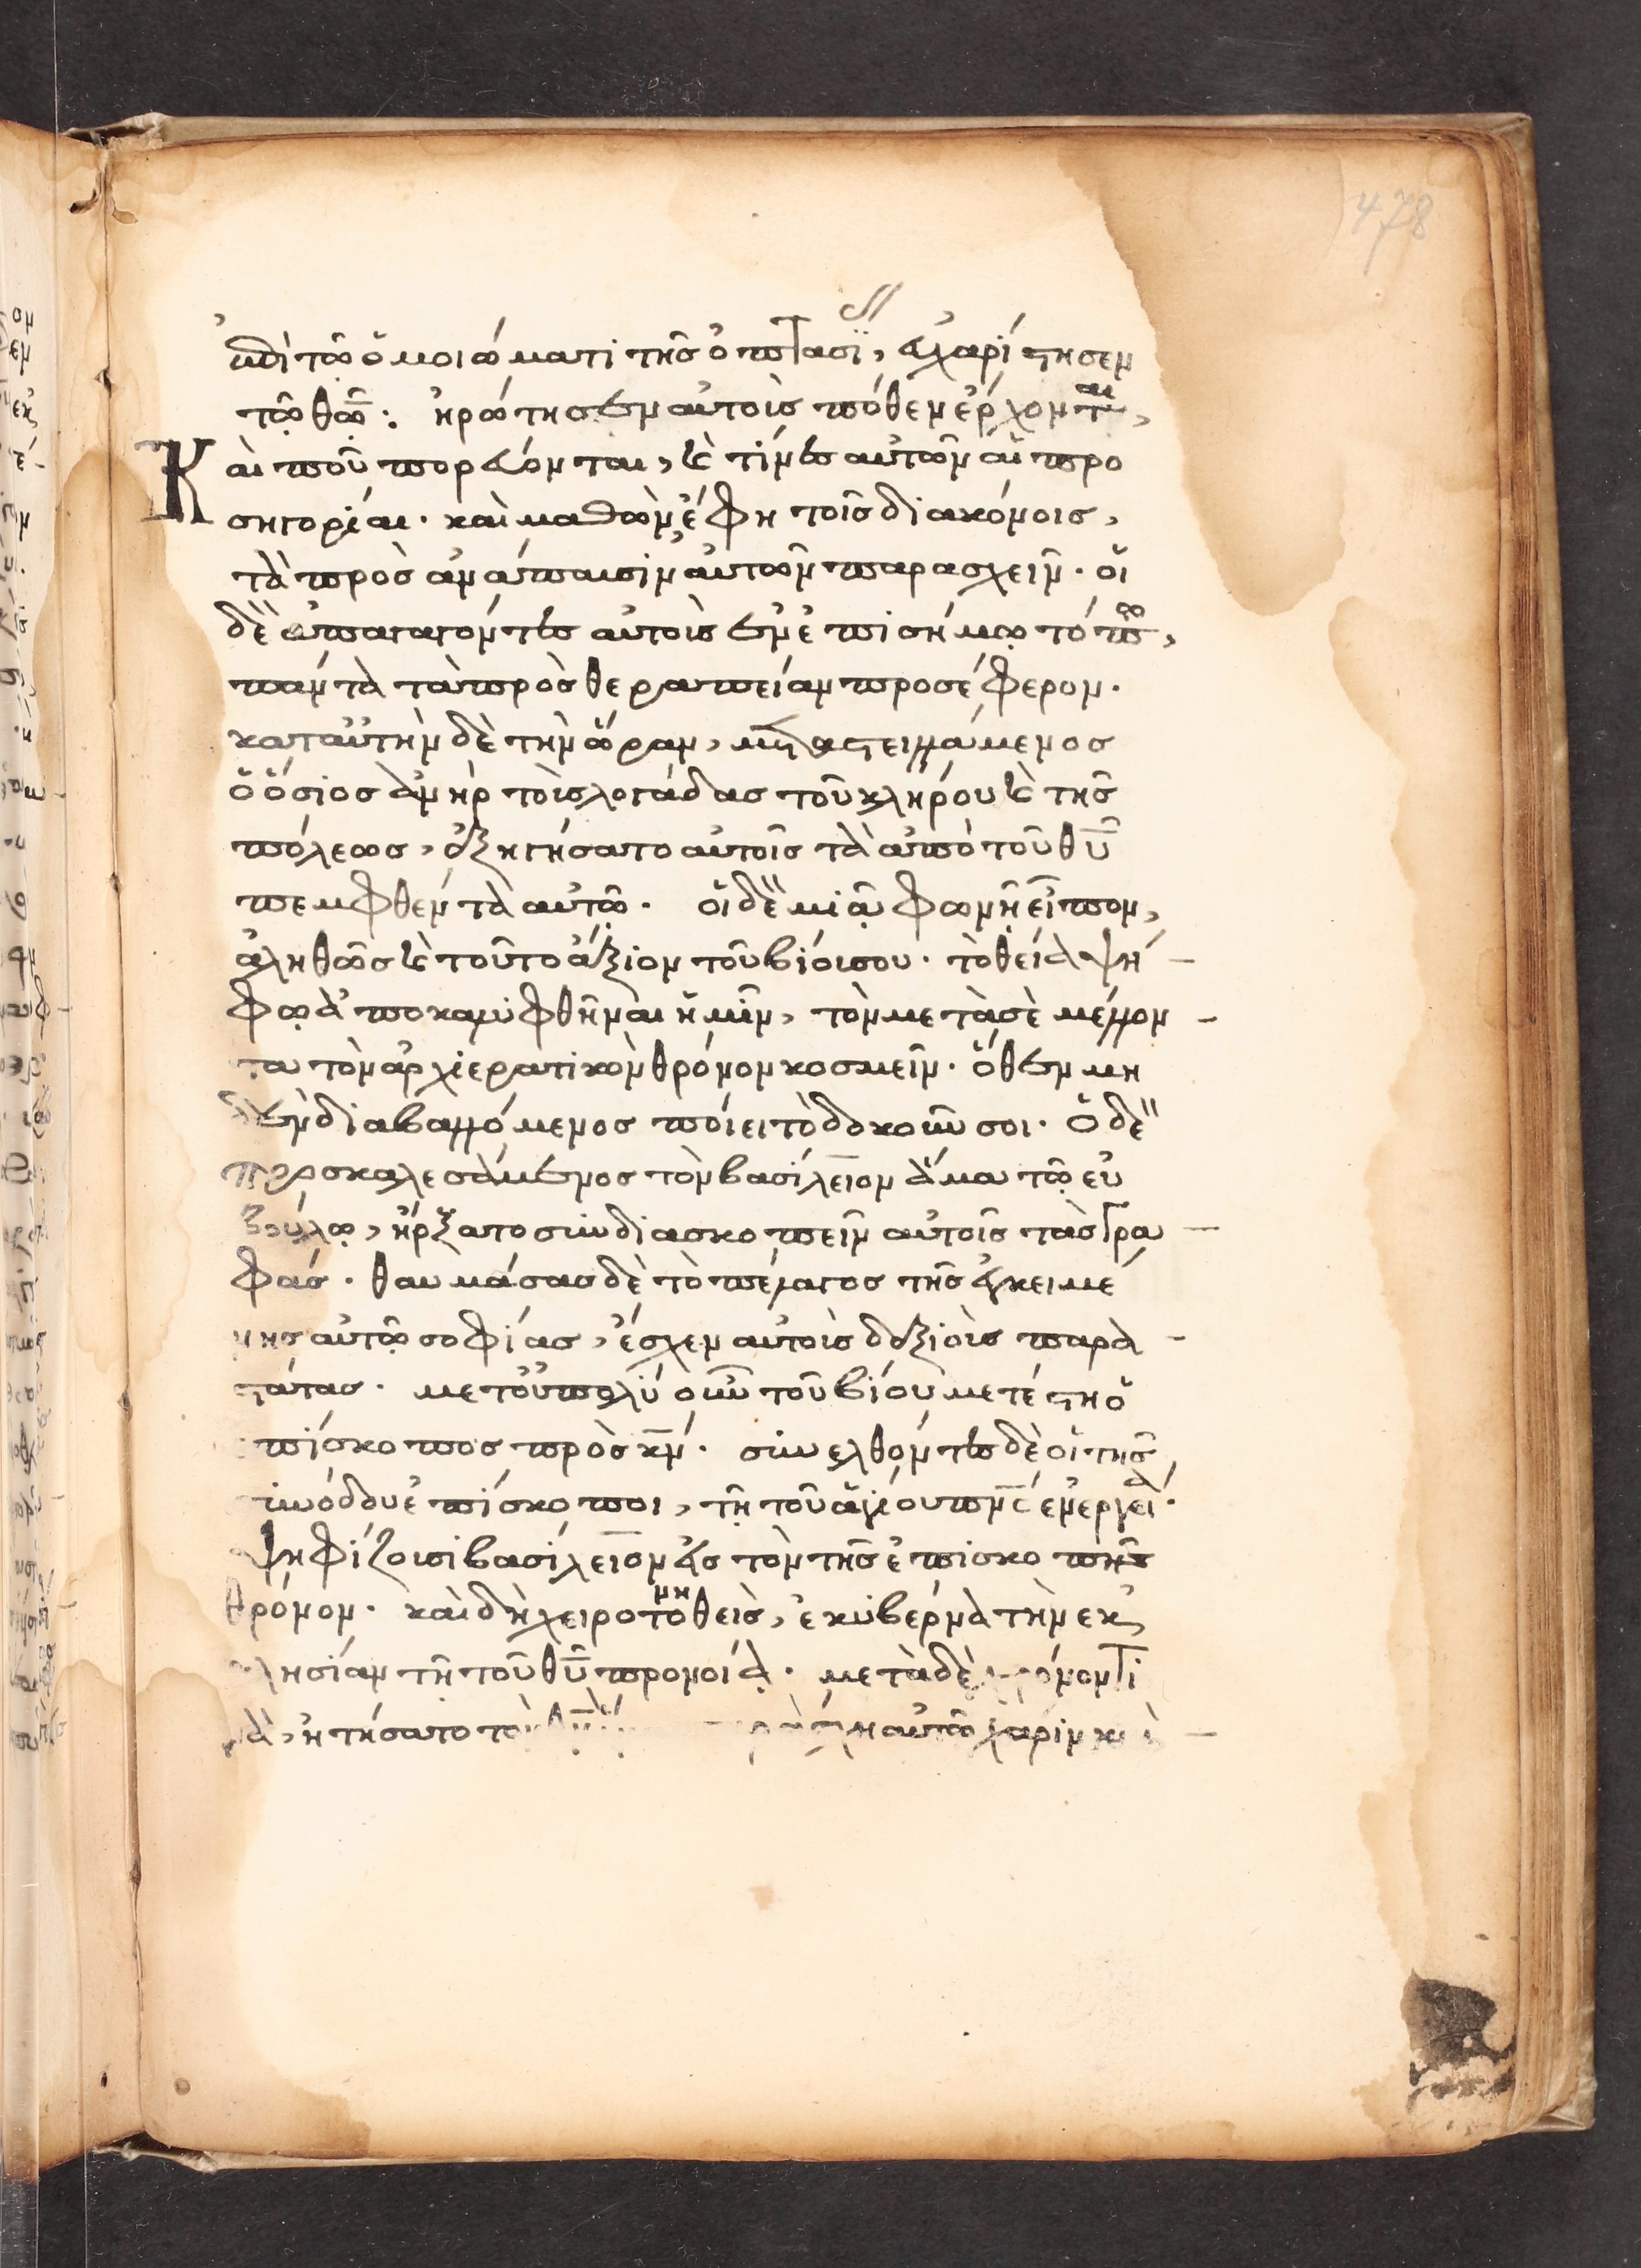 478
ἐπὶ τῷ ὁμοιώματι τῆς ὀπτασί, εὐχαρίστησεν
τῷ θῶ: ἠρώτησεν αὐτοὺς πόθεν ἔρχονται,
Καὶ ποῦ πορεύονται, καὶ τίνες αὐτῶν αἱ προ
σηγορίαι. καὶ μαθὼν ἔφη τοῖς διακόνοις,
τὰ πρὸς ἀνάπαυσιν αὐτῶν παρασχεῖν. οἱ
δὲ ἀπαγαγόντες αὐτοὺς ἐν ἐπισήμῳ τόπω,
πάντα τὰ πρὸς θεραπείαν προσέφερον.
κατ αὐτὴν δὲ τὴν ὥραν, μεταστειλάμενος
ὁ ὅσιος ἀνὴρ τοὺς λογάδας τοῦ κλήρου καὶ τῆς
πόλεως, ἐξηγήσατο αὐτοῖς τὰ ἀπὸ τοῦ θῦ
πεμφθέντα αὐτῷ. οἱ δὲ μιᾷ φωνῇ εἶπον,
ἀληθῶς καὶ τοῦτο ἄξιον τοῦ βίου σου. τὸ θείᾳ ψή
φῳ ἀποκαλυφθῆναι ἡμῖν, τὸν μετὰ σὲ μέλλον
τα τὸν ἀρχιερατικὸν θρόνον κοσμεῖν. ὅθεν μη
δὲν διαβαλλόμενος ποίει τὸ δοκοῦν σοι. Ὁ δὲ
προσκαλεσάμενος τὸν βασίλειον ἅμα τῷ εὐ
βούλῳ, ἤρξατο συνδιασκοπεῖν αὐτοῖς τὰς γρα
φάς. θαυμάσας δὲ τὸ πέλαγος τῆς ἐγκειμέ
νης αὐτῷ σοφίας, ἔσχεν αὐτοὺς δεξιοὺς παρα
στάτας. μετ οὐ πολὺ οὖν τοῦ βίου μετέστη ὁ
ἐπίσκοπος πρὸς κν. συνελθόντες δὲ οἱ τῆς
συνόδου ἐπίσκοποι, τῇ τοῦ ἁγίου πνς ἐνεργεία.
ψηφίζουσι βασίλειον εἰς τὸν τῆς ἐπισκοπῆς
θρόνον. καὶ δὴ χειροτονηθεὶς, ἐκυβέρνα τὴν ἐκ
κλησίαν τῇ τοῦ θῦ προνοίᾳ. μετὰ δὲ χρόνον τι
νὰ, ἠτήσατο τὸν θν αὐτῷ χάριν